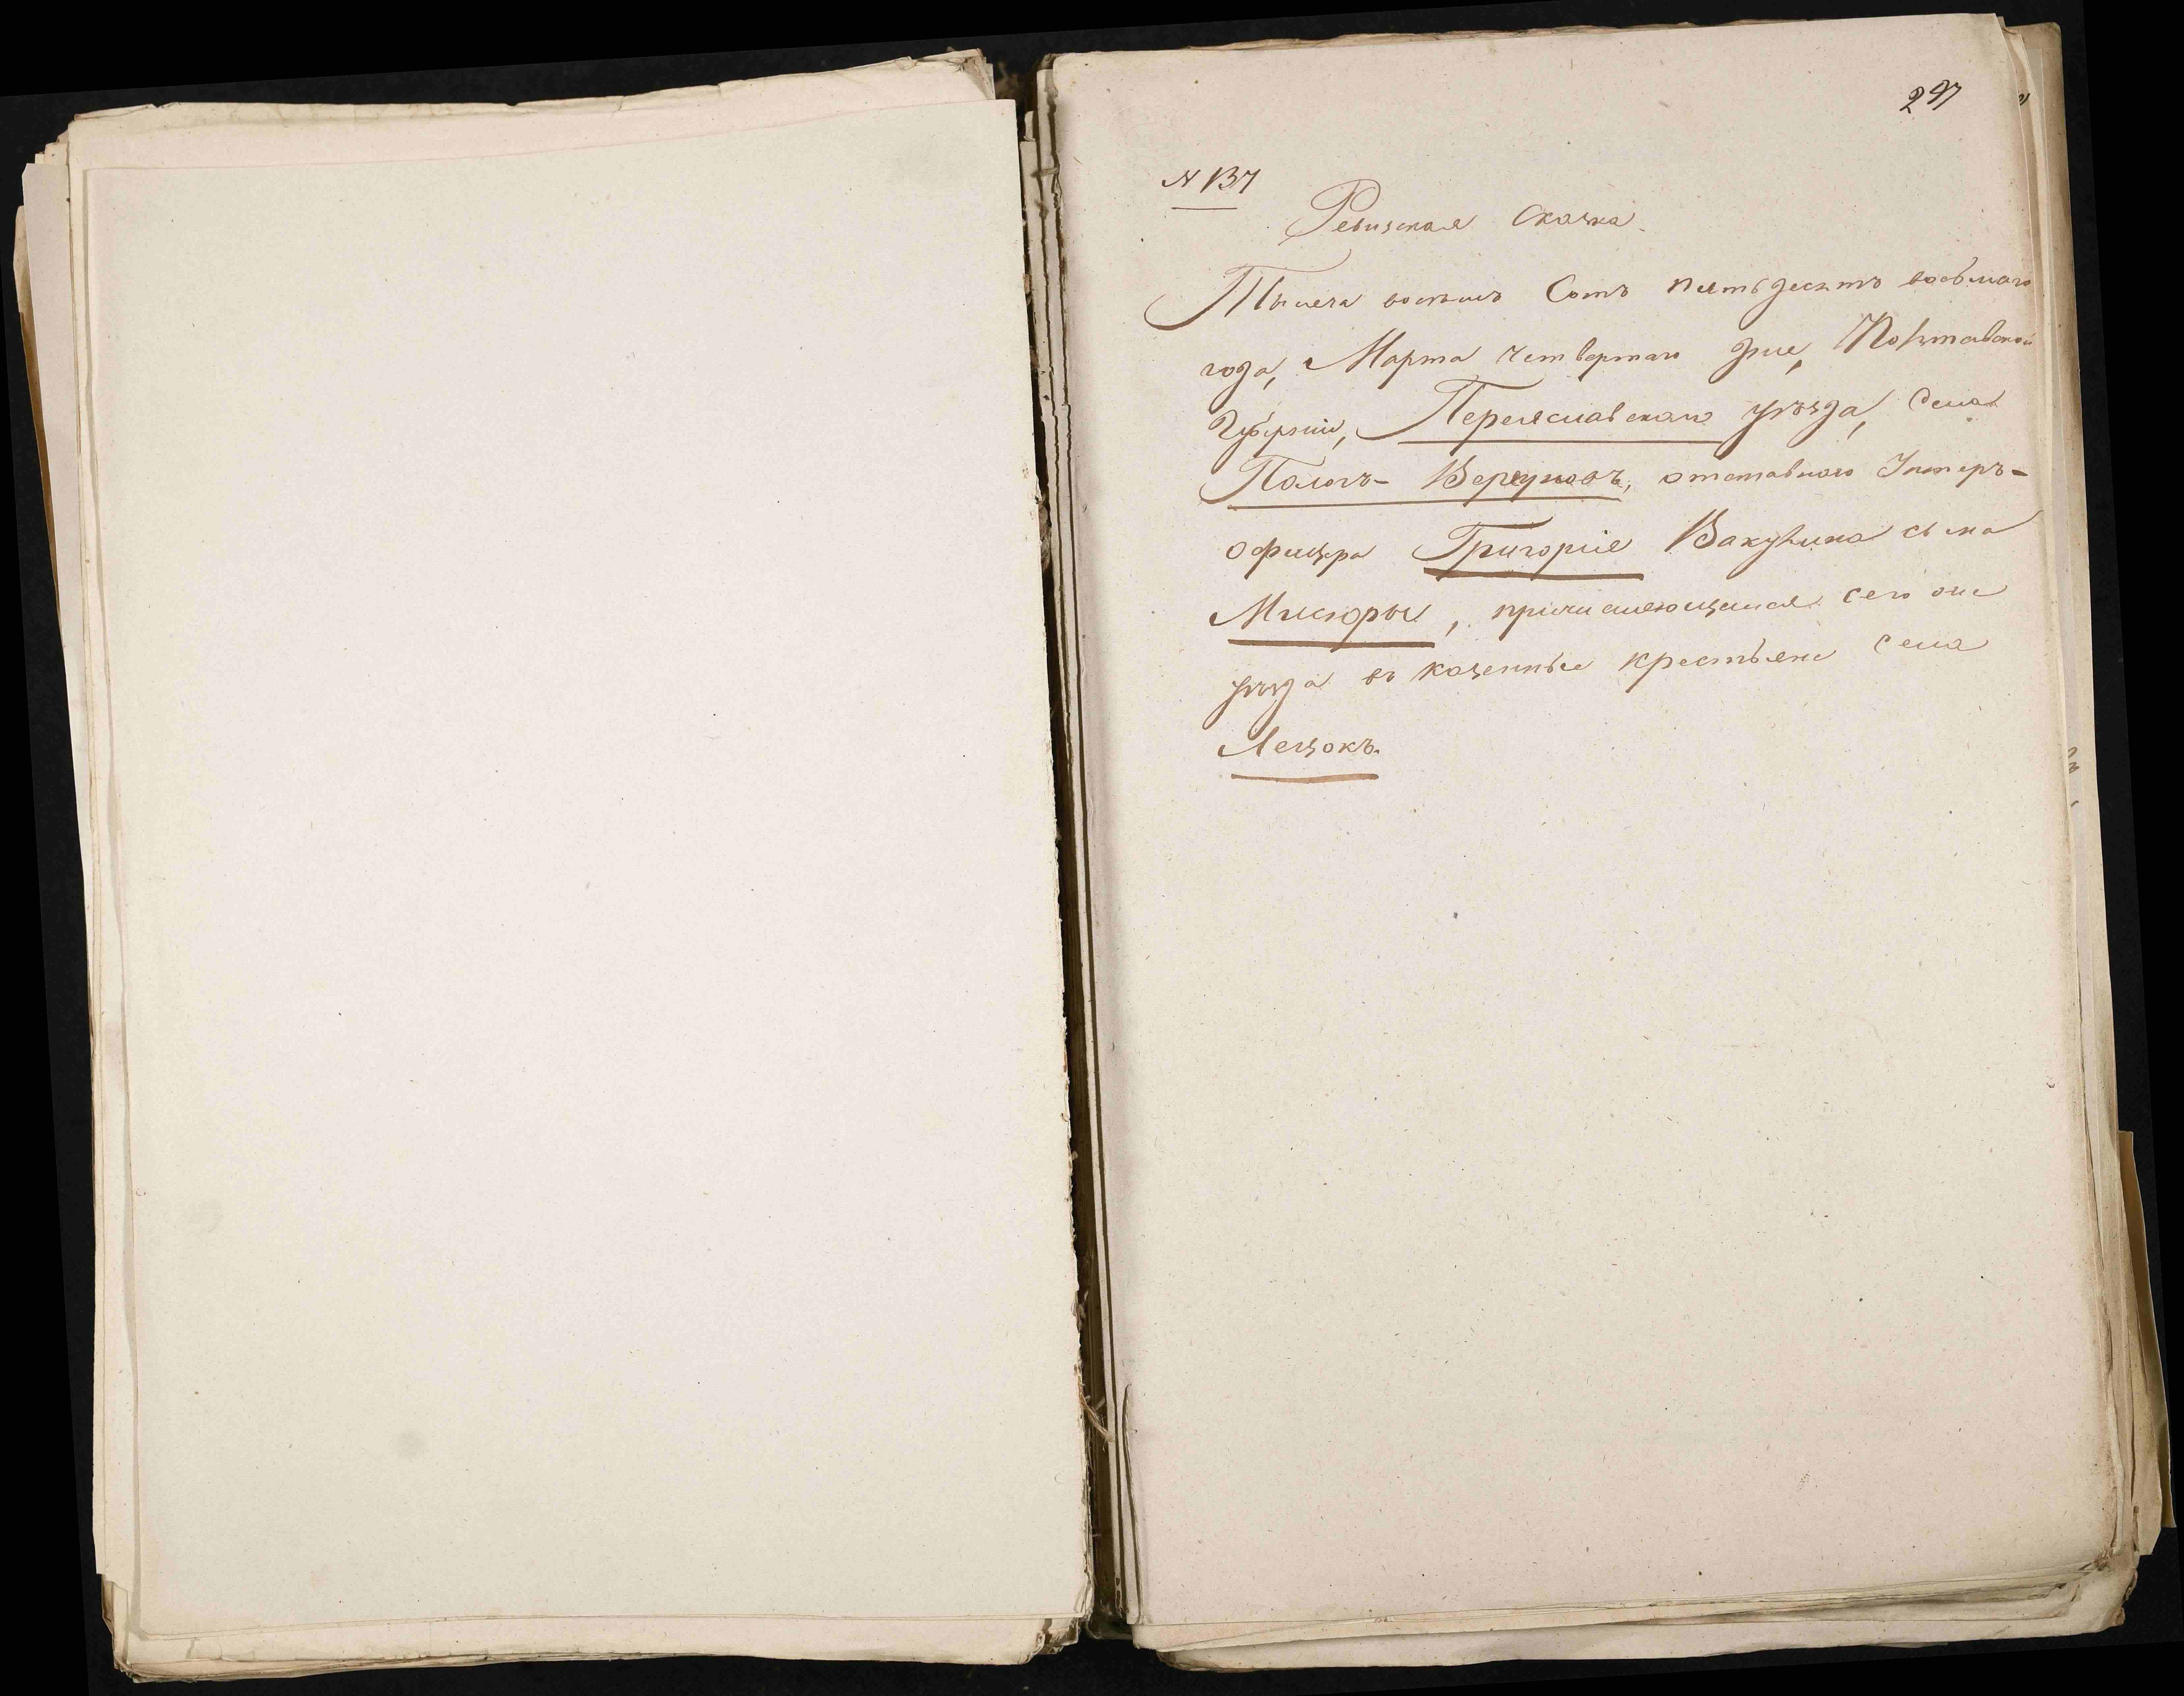 297
N 137
Ревизская Сказка.
Тысяча восемь Сотъ пятьдесятъ восьмаго
года, Марта четвертаго дня, Полтавской
Губерніи, Переяславскаго уѣзда, села
Пологъ-Вергуновъ, отставнаго Унтеръ-
офицера Григорія Вакулина сына
Мисюры, причисляющагося сего же
уѣзда въ казенные крестьяне села
Лецокъ.